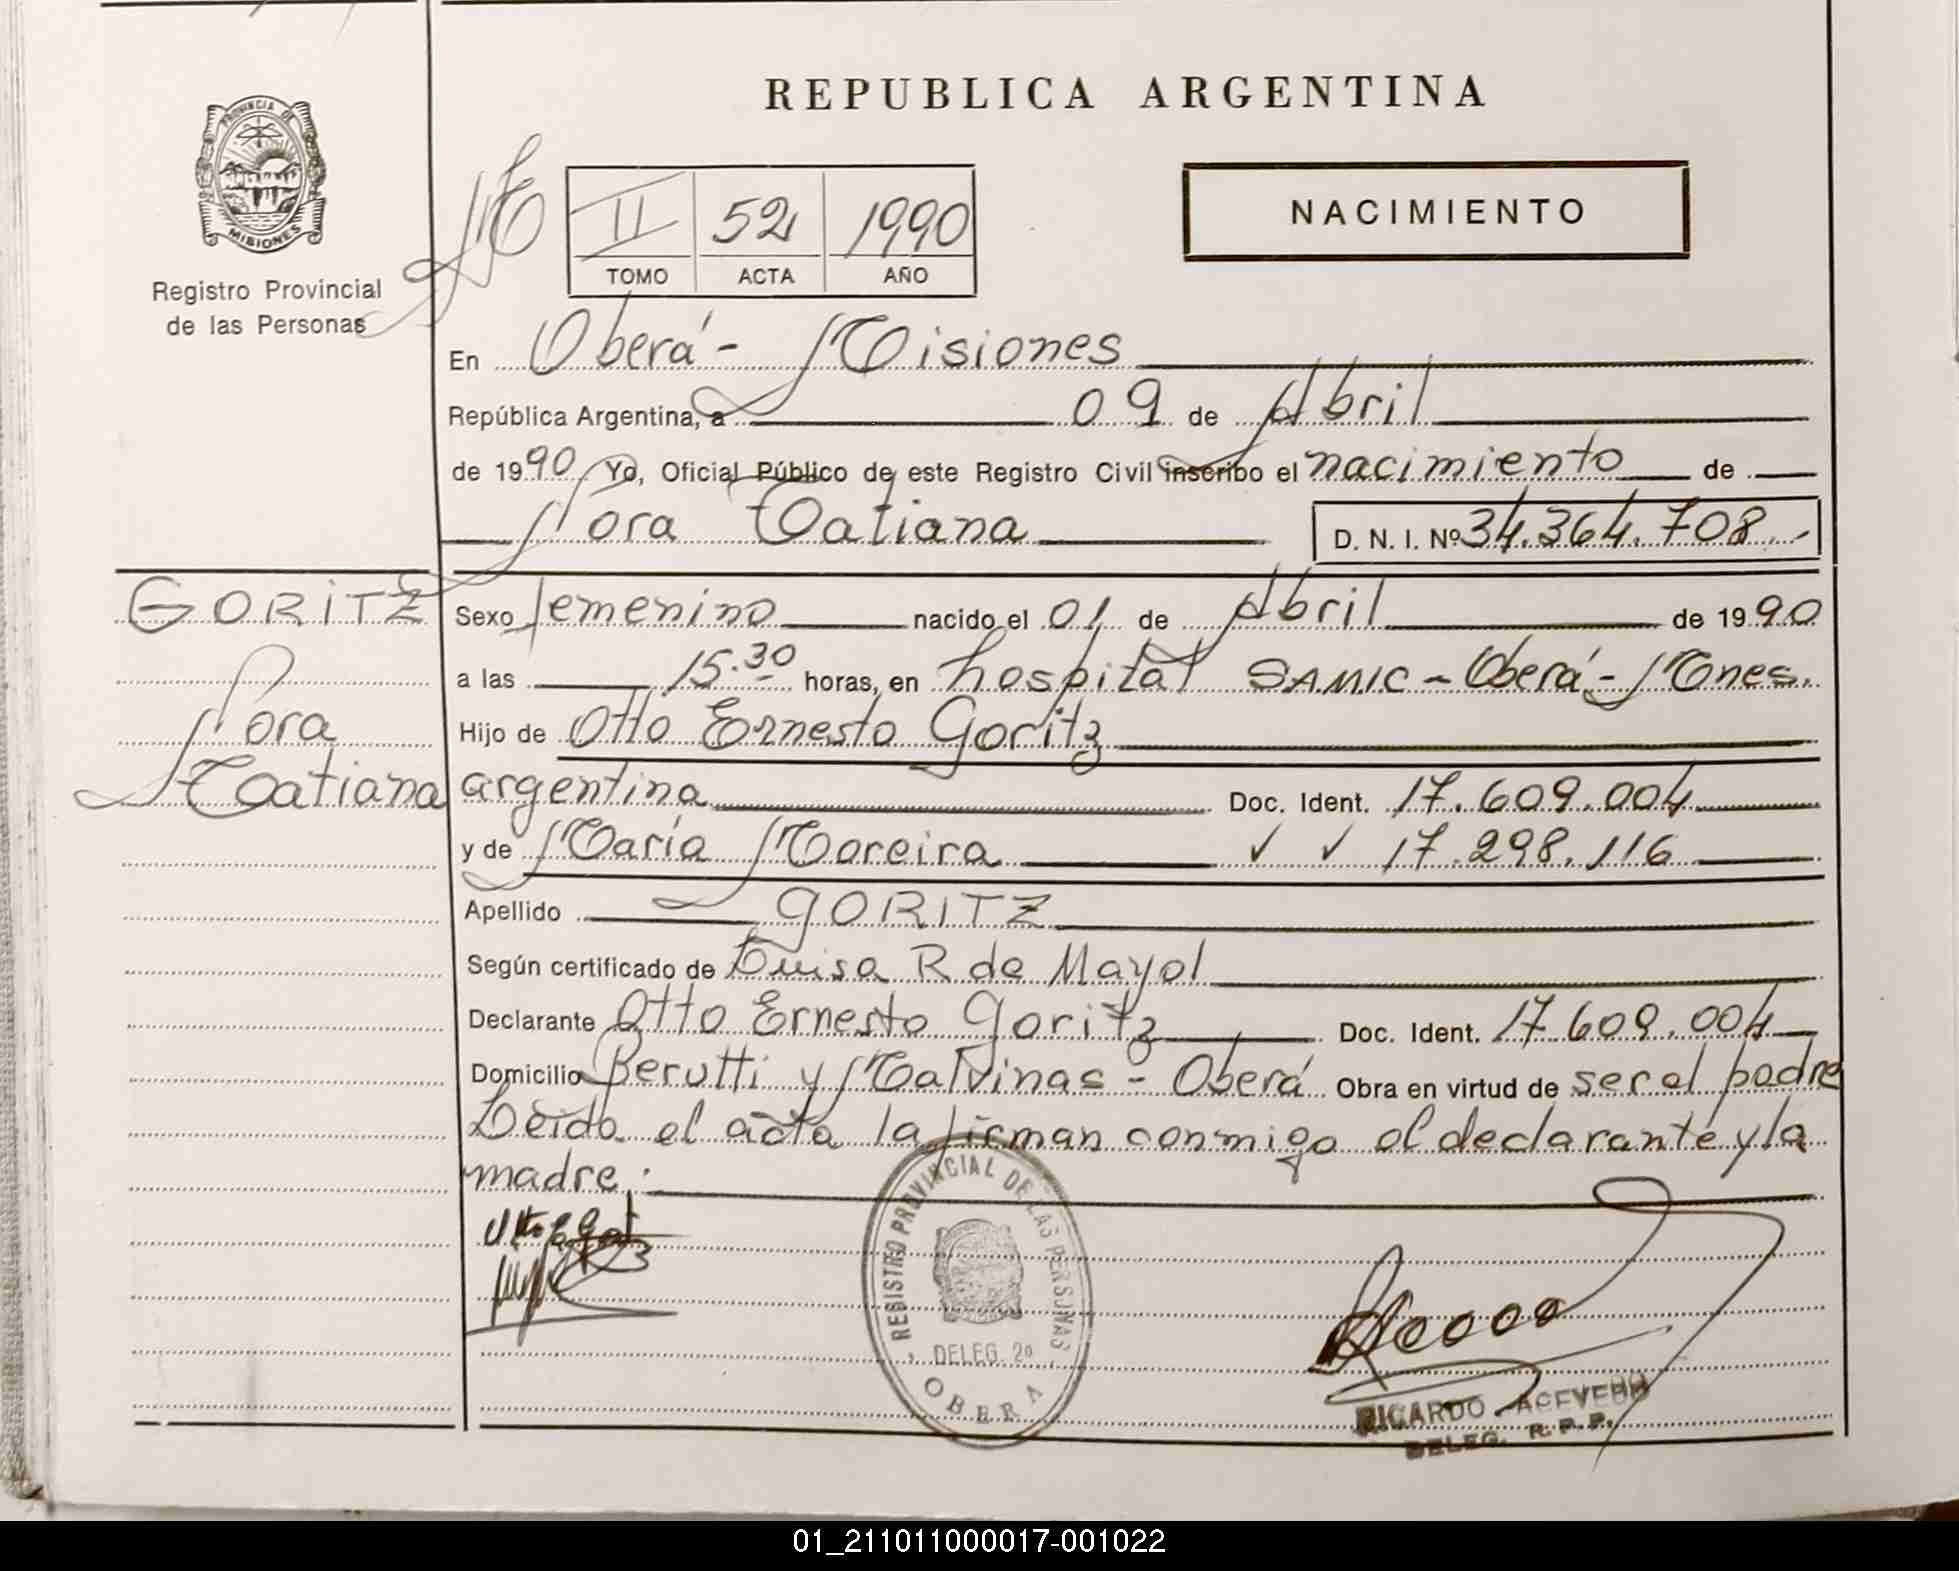 REPUBLICA ARGENTINA
PROVINCIA DE MISIONES
Registro Provincial
de las Personas
II 52 1990
TOMO ACTA AÑO
NACIMIENTO
En Oberá - Misiones
República Argentina, a 09 de Abril
de 1990 Yo, Oficial Público de este Registro Civil inscribo el nacimiento de
Nora Tatiana D. N. I. Nº 34.364.708.-
GORITZ
Nora
Tatiana
Sexo femenino nacido el 01 de Abril de 1990
a las 15.30 horas, en hospital SAMIC - Oberá - Mnes.
Hijo de Otto Ernesto Goritz
argentina Doc. Ident. 17.609.004
y de María Moreira 17.298.116
Apellido GORITZ
Según certificado de Luisa R de Mayol
Declarante Otto Ernesto Goritz Doc. Ident. 17.609.004
Domicilio Berutti y Malvinas - Oberá Obra en virtud de ser el padre
Leida el acta la firman conmigo el declarante y la
madre.
REGISTRO PROVINCIAL DE LAS PERSONAS
DELEG. 2ª
OBERA
RICARDO ACEVEDO
DELEG. R. P. P.
01_211011000017-001022